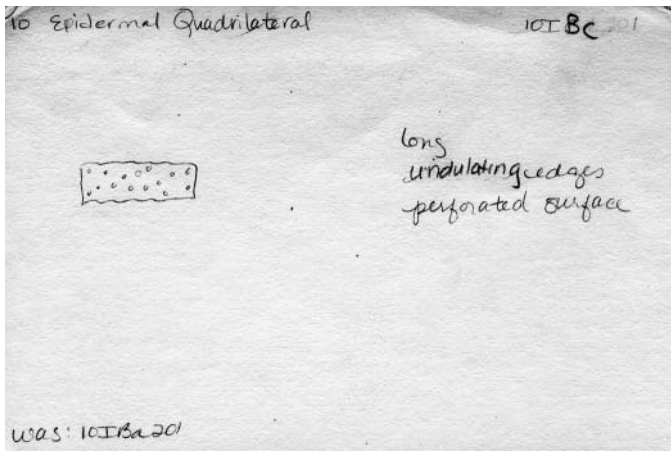 10 Epidermal Quadrilateral
10I Bc 201
long
undulating edges
perforated surface
was: 10IBa201